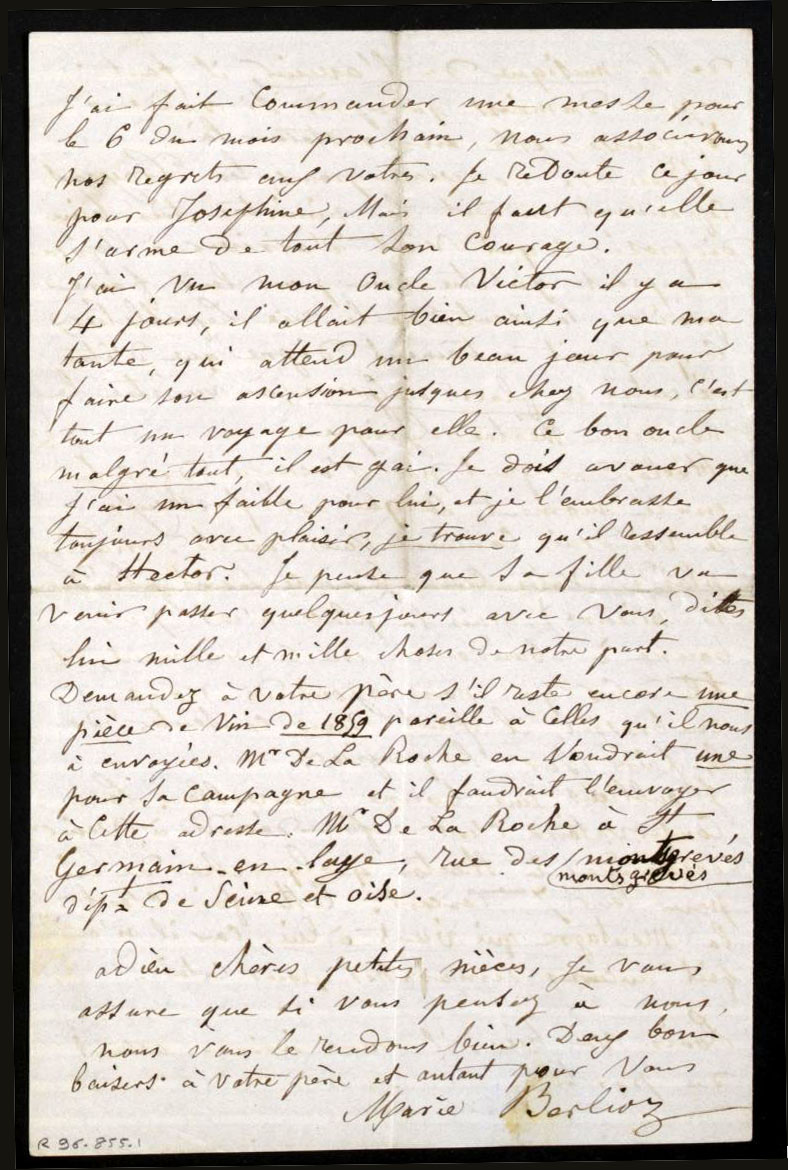 J'ai fait Commander une messe pour
le 6 du mois prochain, nous associerons
nos regrets aux votres. Je redoute ce jour
pour Josephine, Mais il faut qu'elle
s'arme de tout son courage.
J'ai vu mon Oncle Victor il y a
4 jours, il allait bien ainsi que ma
tante, qui attend un beau jour pour
faire son ascension jusques chez nous, c'est
tout un voyage pour elle. Ce bon oncle
malgré tout, il est gai. Je dois avouer que
J'ai un faible pour lui, et je l'embrasse
toujours avec plaisir, je trouve qu'il ressemble
à Hector. Je pense que sa fille va
venir passer quelques jours avec vous, dites
lui mille et mille choses de notre part.
Demandez à votre père s'il reste encore une
pièce de Vin de 1859 pareille à Celles qu'il nous
à envoyées. Mr De La Roche en Voudrait une
pour sa Campagne et il faudrait l'envoyer
à Cette adresse. Mr De La Roche à St
Germain-en-laye, rue des montsgrevés
montsgrevés
dépt de Seine et oise.
adieu chères petites nièces, Je vous
assure que si vous pensez à nous,
nous vous le rendons bien. Deux bons
baisers à votre père et autant pour Vous
Marie Berlioz
R 96.855.1